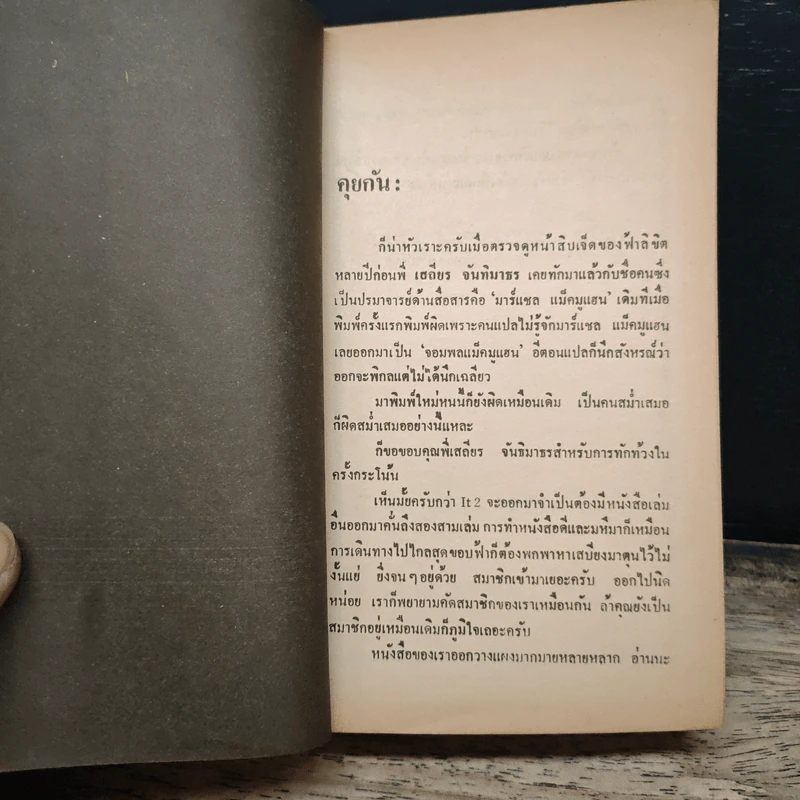 คุยกัน :
ก็น่าหัวเราะครับเมื่อตรวจดูหน้าสิบเจ็ดของฟ้าลิขิต
หลายปีก่อนพี่ เสถียร จันทิมาธร เคยทักมาแล้วกับชื่อคนซึ่ง
เป็นปรมาจารย์ด้านสื่อสารคือ ‘มาร์แชล แม็คมูแฮน’ เดิมทีเมื่อ
พิมพ์ครั้งแรกพิมพ์ผิดเพราะคนแปลไม่รู้จักมาร์แชล แม็คมูแฮน
เลยออกมาเป็น ‘จอมพลแม็คมูแฮน’ อีตอนแปลก็นึกสังหรณ์ว่า
ออกจะพิกลแต่ไม่ได้นึกเฉลียว
มาพิมพ์ใหม่หนนี้ก็ยังผิดเหมือนเดิม เป็นคนสม่ำเสมอ
ก็ผิดสม่ำเสมออย่างนี้แหละ
ก็ขอขอบคุณพี่เสถียร จันธิมาธรสำหรับการทักท้วงใน
ครั้งกระโน้น
เห็นมั้ยครับกว่า It 2 จะออกมาจำเป็นต้องมีหนังสือเล่ม
อื่นออกมาคั่นถึงสองสามเล่ม การทำหนังสือดีและมหึมาก็เหมือน
การเดินทางไปไกลสุดขอบฟ้าก็ต้องพกพาหาเสบียงมาตุนไว้ไม่
งั้นแย่ ยิ่งจน ๆ อยู่ด้วย สมาชิกเข้ามาเยอะครับ ออกไปนิด
หน่อย เราก็พยายามคัดสมาชิกของเราเหมือนกัน ถ้าคุณยังเป็น
สมาชิกอยู่เหมือนเดิมก็ภูมิใจเถอะครับ
หนังสือของเราออกวางแผงมากมายหลายหลาก อ่านนะ